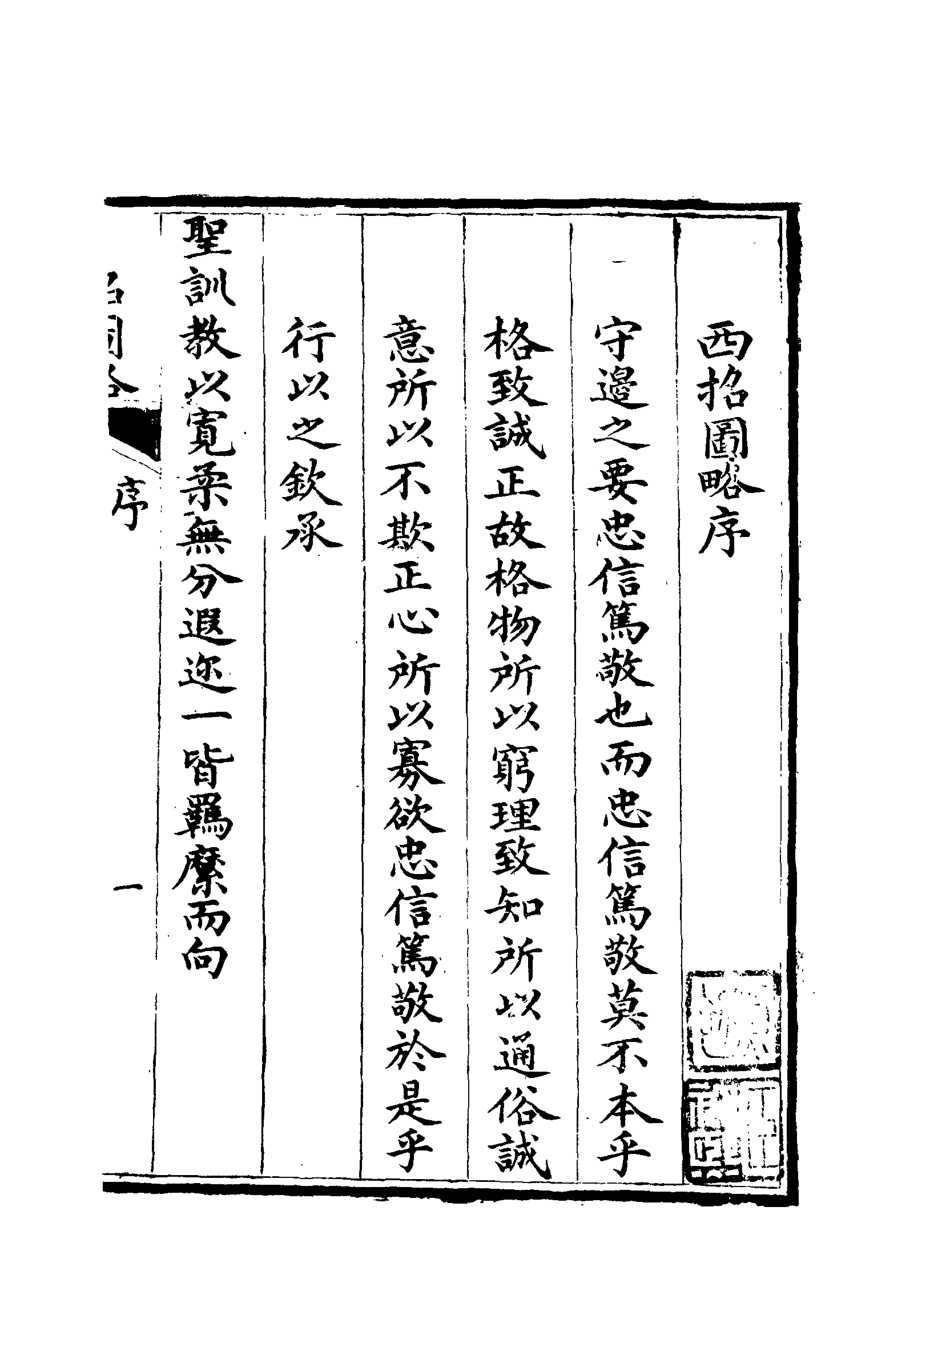 西招圖略序
守邊之要忠信篤敬也而忠信篤敬莫不本乎
格致誠正故格物所以窮理致知所以通俗誠
意所以不欺正心所以寡欲忠信篤敬於是乎
行以之欽承
聖訓教以寛柔無分遐迩一皆羈縻而向
招圖略
序
一